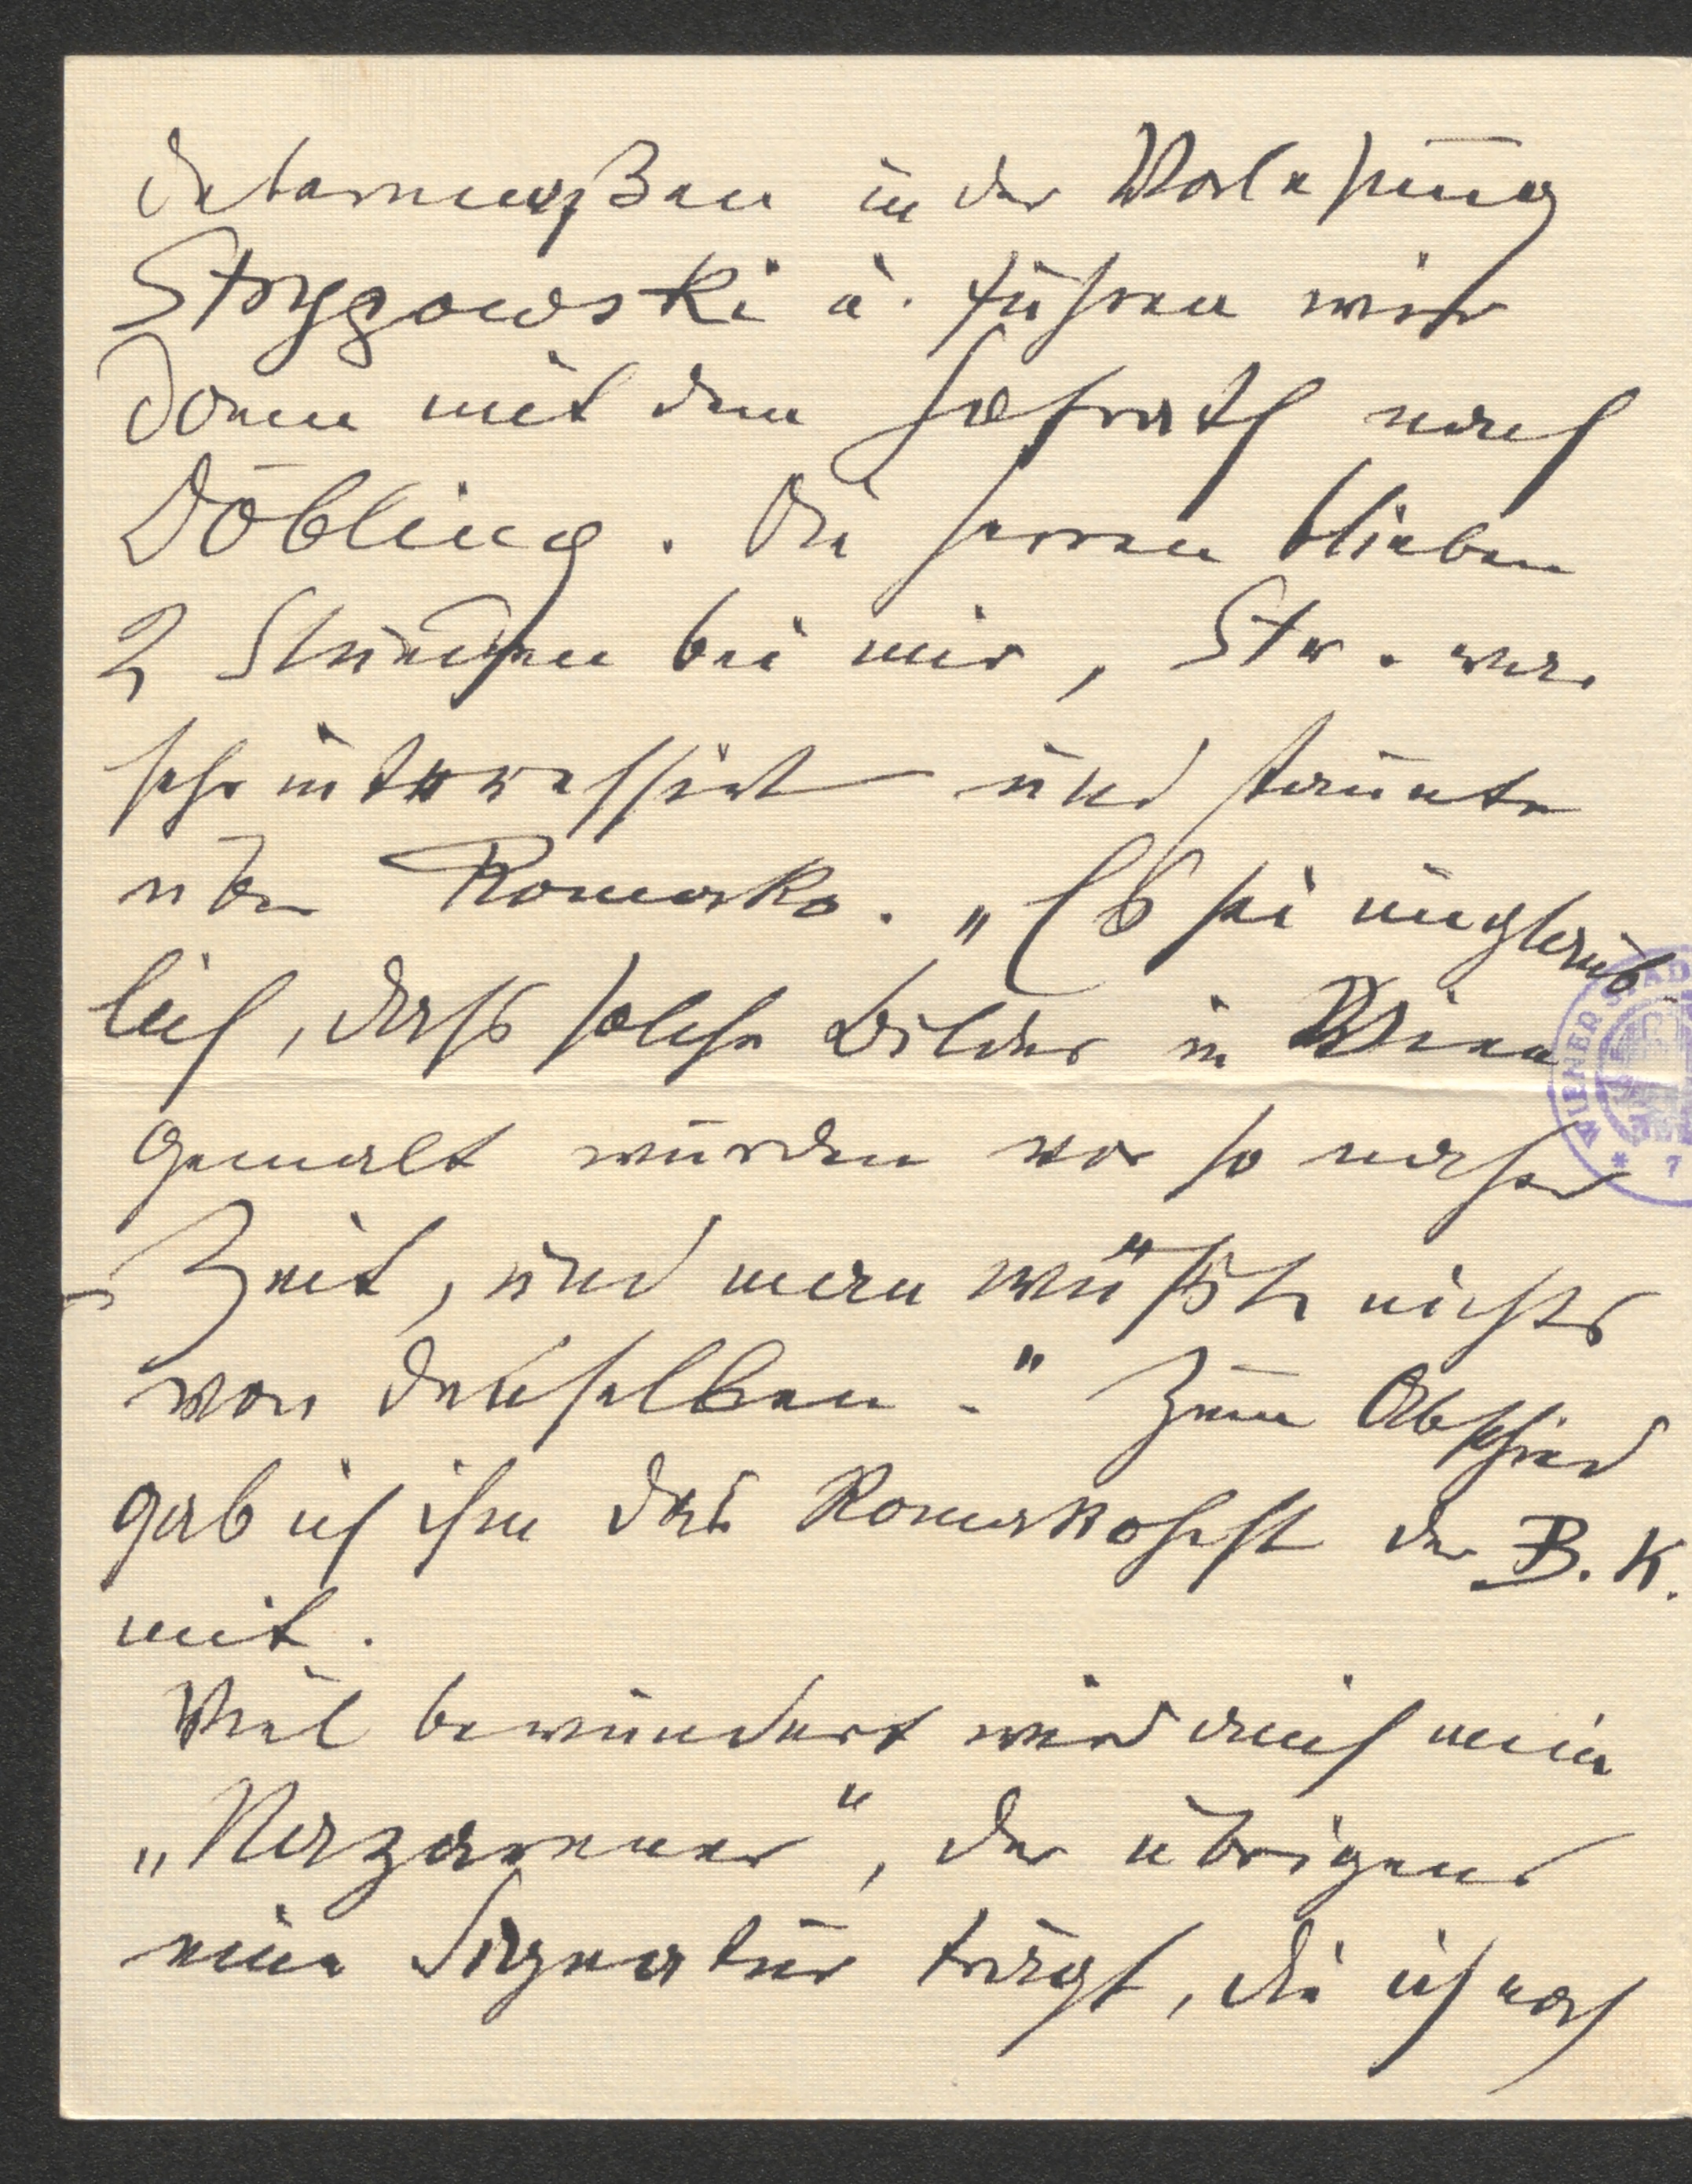 in der Vorlesung
Strygowski u. fuhren wir
dann mit dem Hofrath nach
Döbling. Die Herren blieben
2 Stunden bei mir, Str. war
sehr interessirt und staunte
über Romako. „Es sei unglaub-
lich, dass solche Bilder in Wien
gemalt wurden vor so naher
Zeit, und man wüßte nichts
von denselben." Zum Abschied
gab ich ihm das Romakoheft der B. K.
mit.
Viel bewundert wird auch mein
„Nazarener", der übrigens
eine Signatur trägt, die ich noch
WIENER STAD
* 7